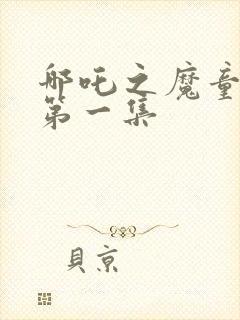 邪吒之魔童
第一集
貝京